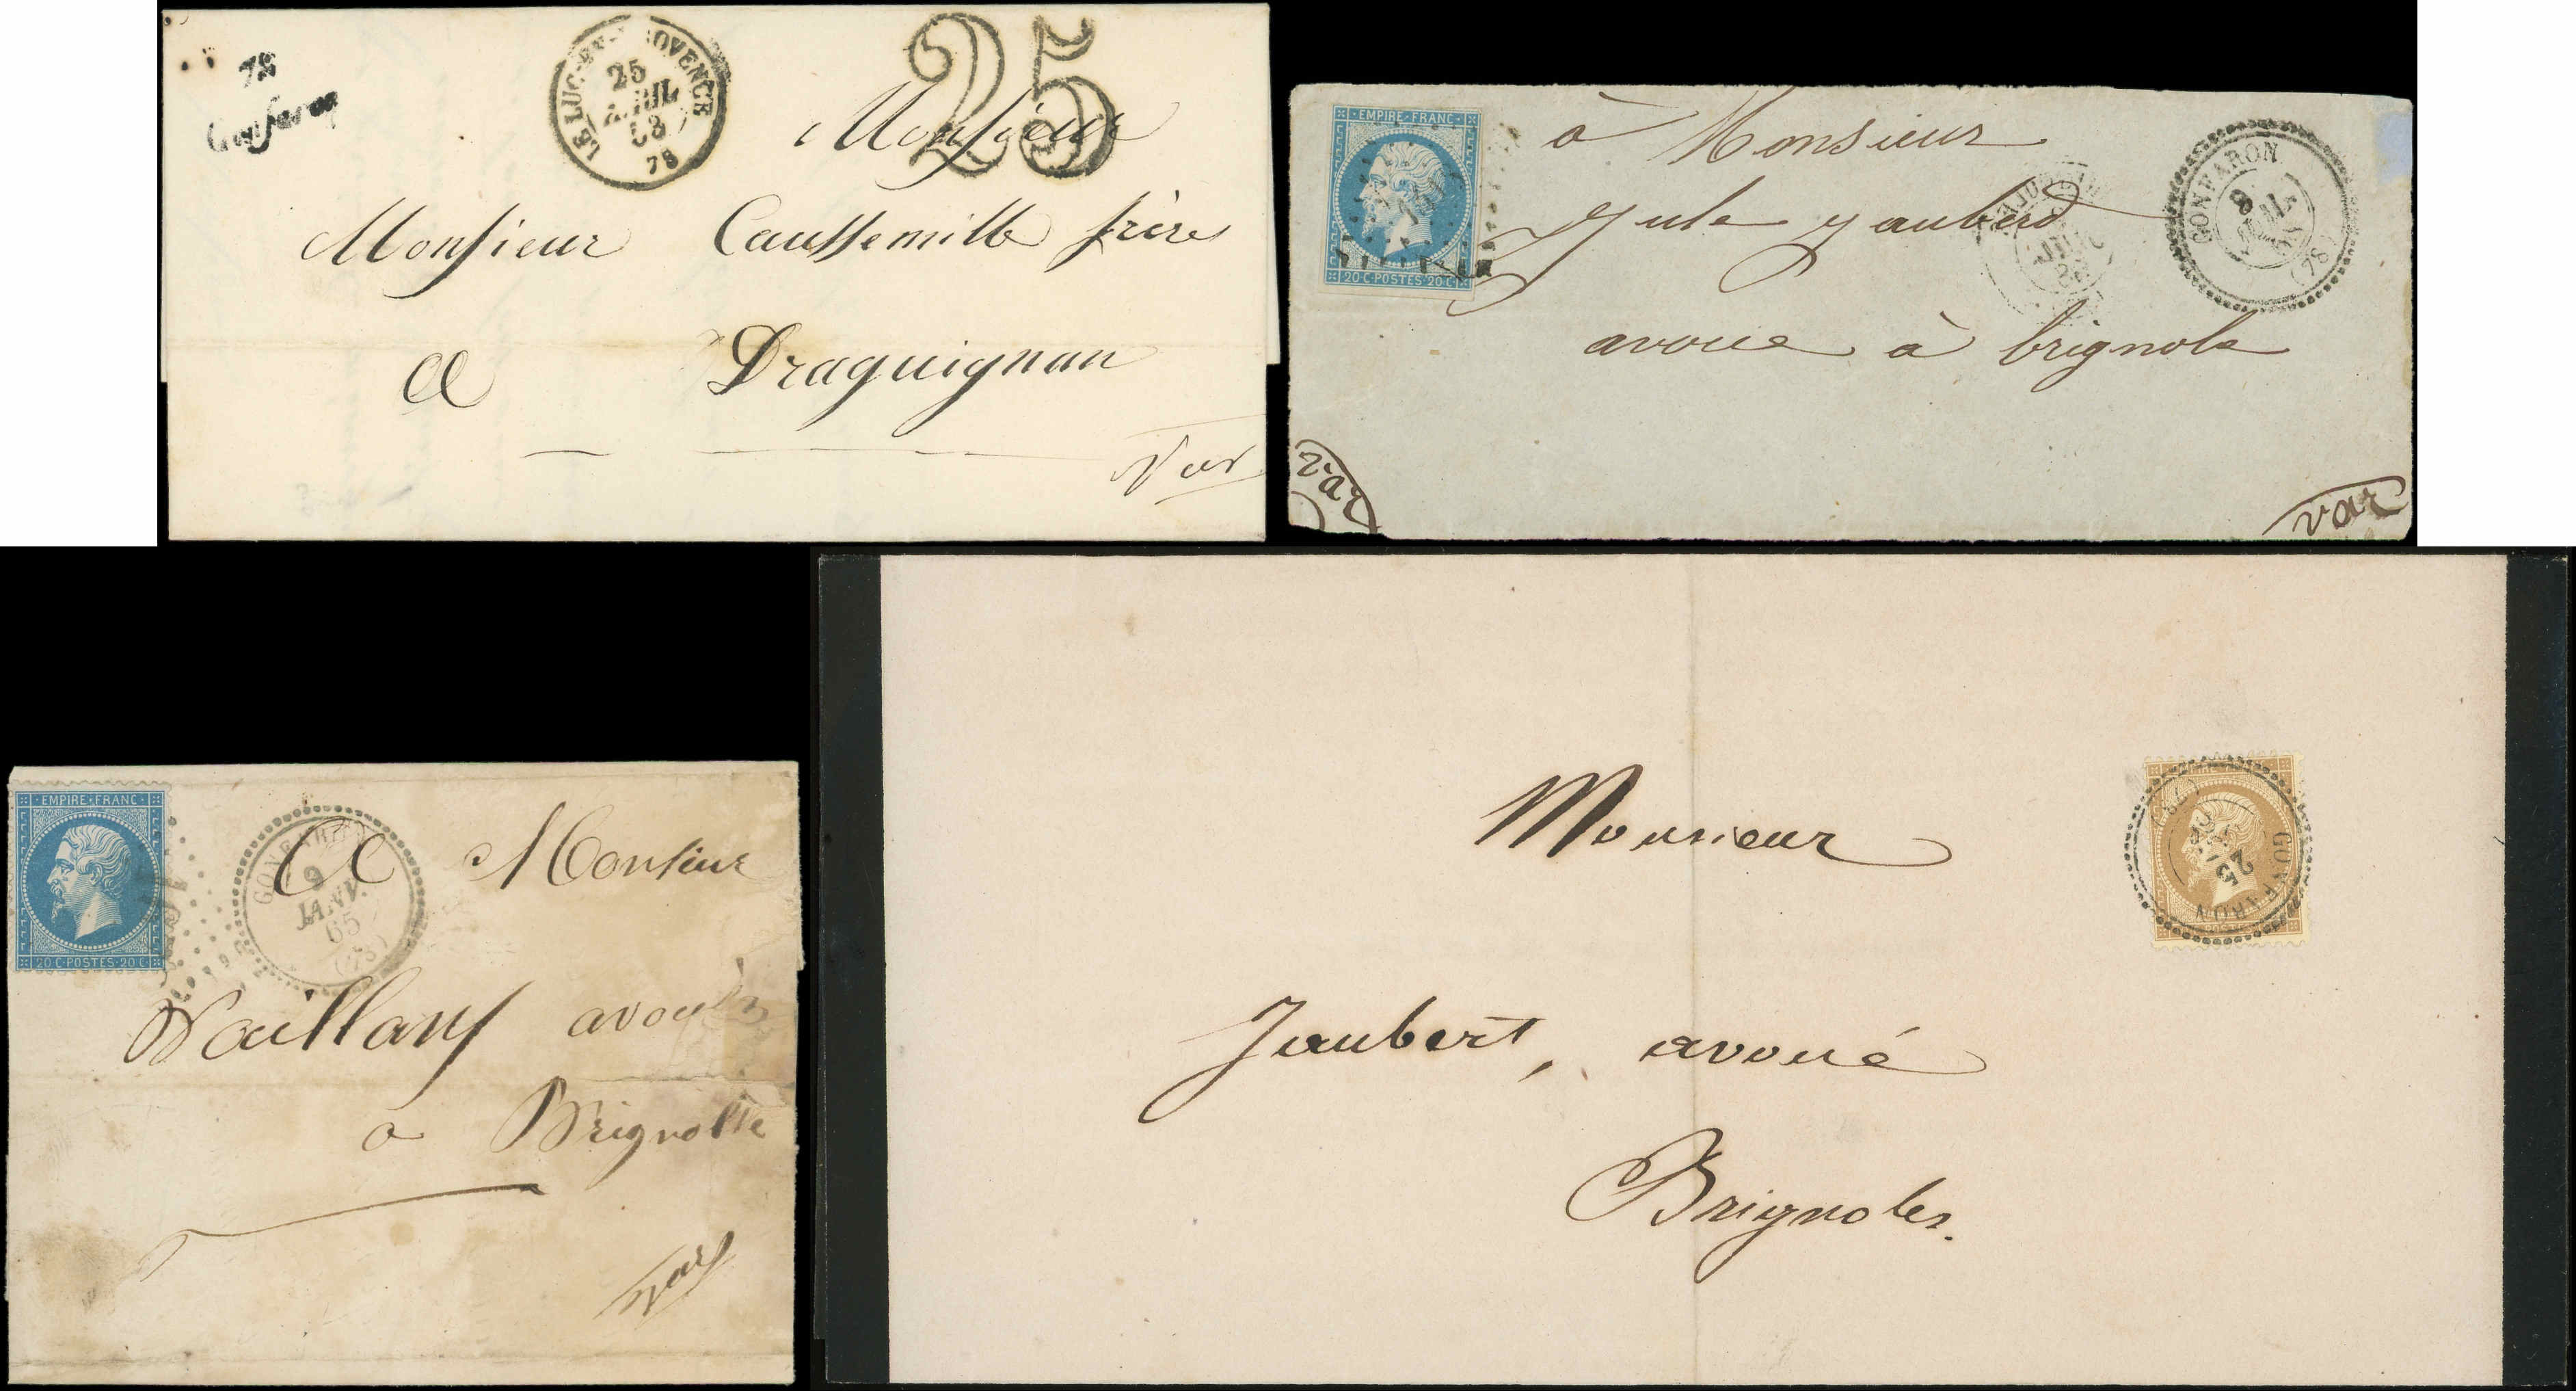 78
Gonfaron
LE LUC-EN-PROVENCE
25
AVRIL
53
78
25
Monsieur
Monsieur Caussemille frères
A Draguignan
Var
EMPIRE FRANC
20 C POSTES 20 C
à Monsieur
Jule Jauberd
avoué à brignole
GONFARON
8
JUIL
(78)
var
var
EMPIRE FRANC
20 C POSTES 20 C
GONFARON
6
JANV.
65
(78)
A Monsieur
Vaillant avoué
a Brignolle
Var
Monsieur
Jaubert, avoué
Brignoles.
GONFARON
25
(78)